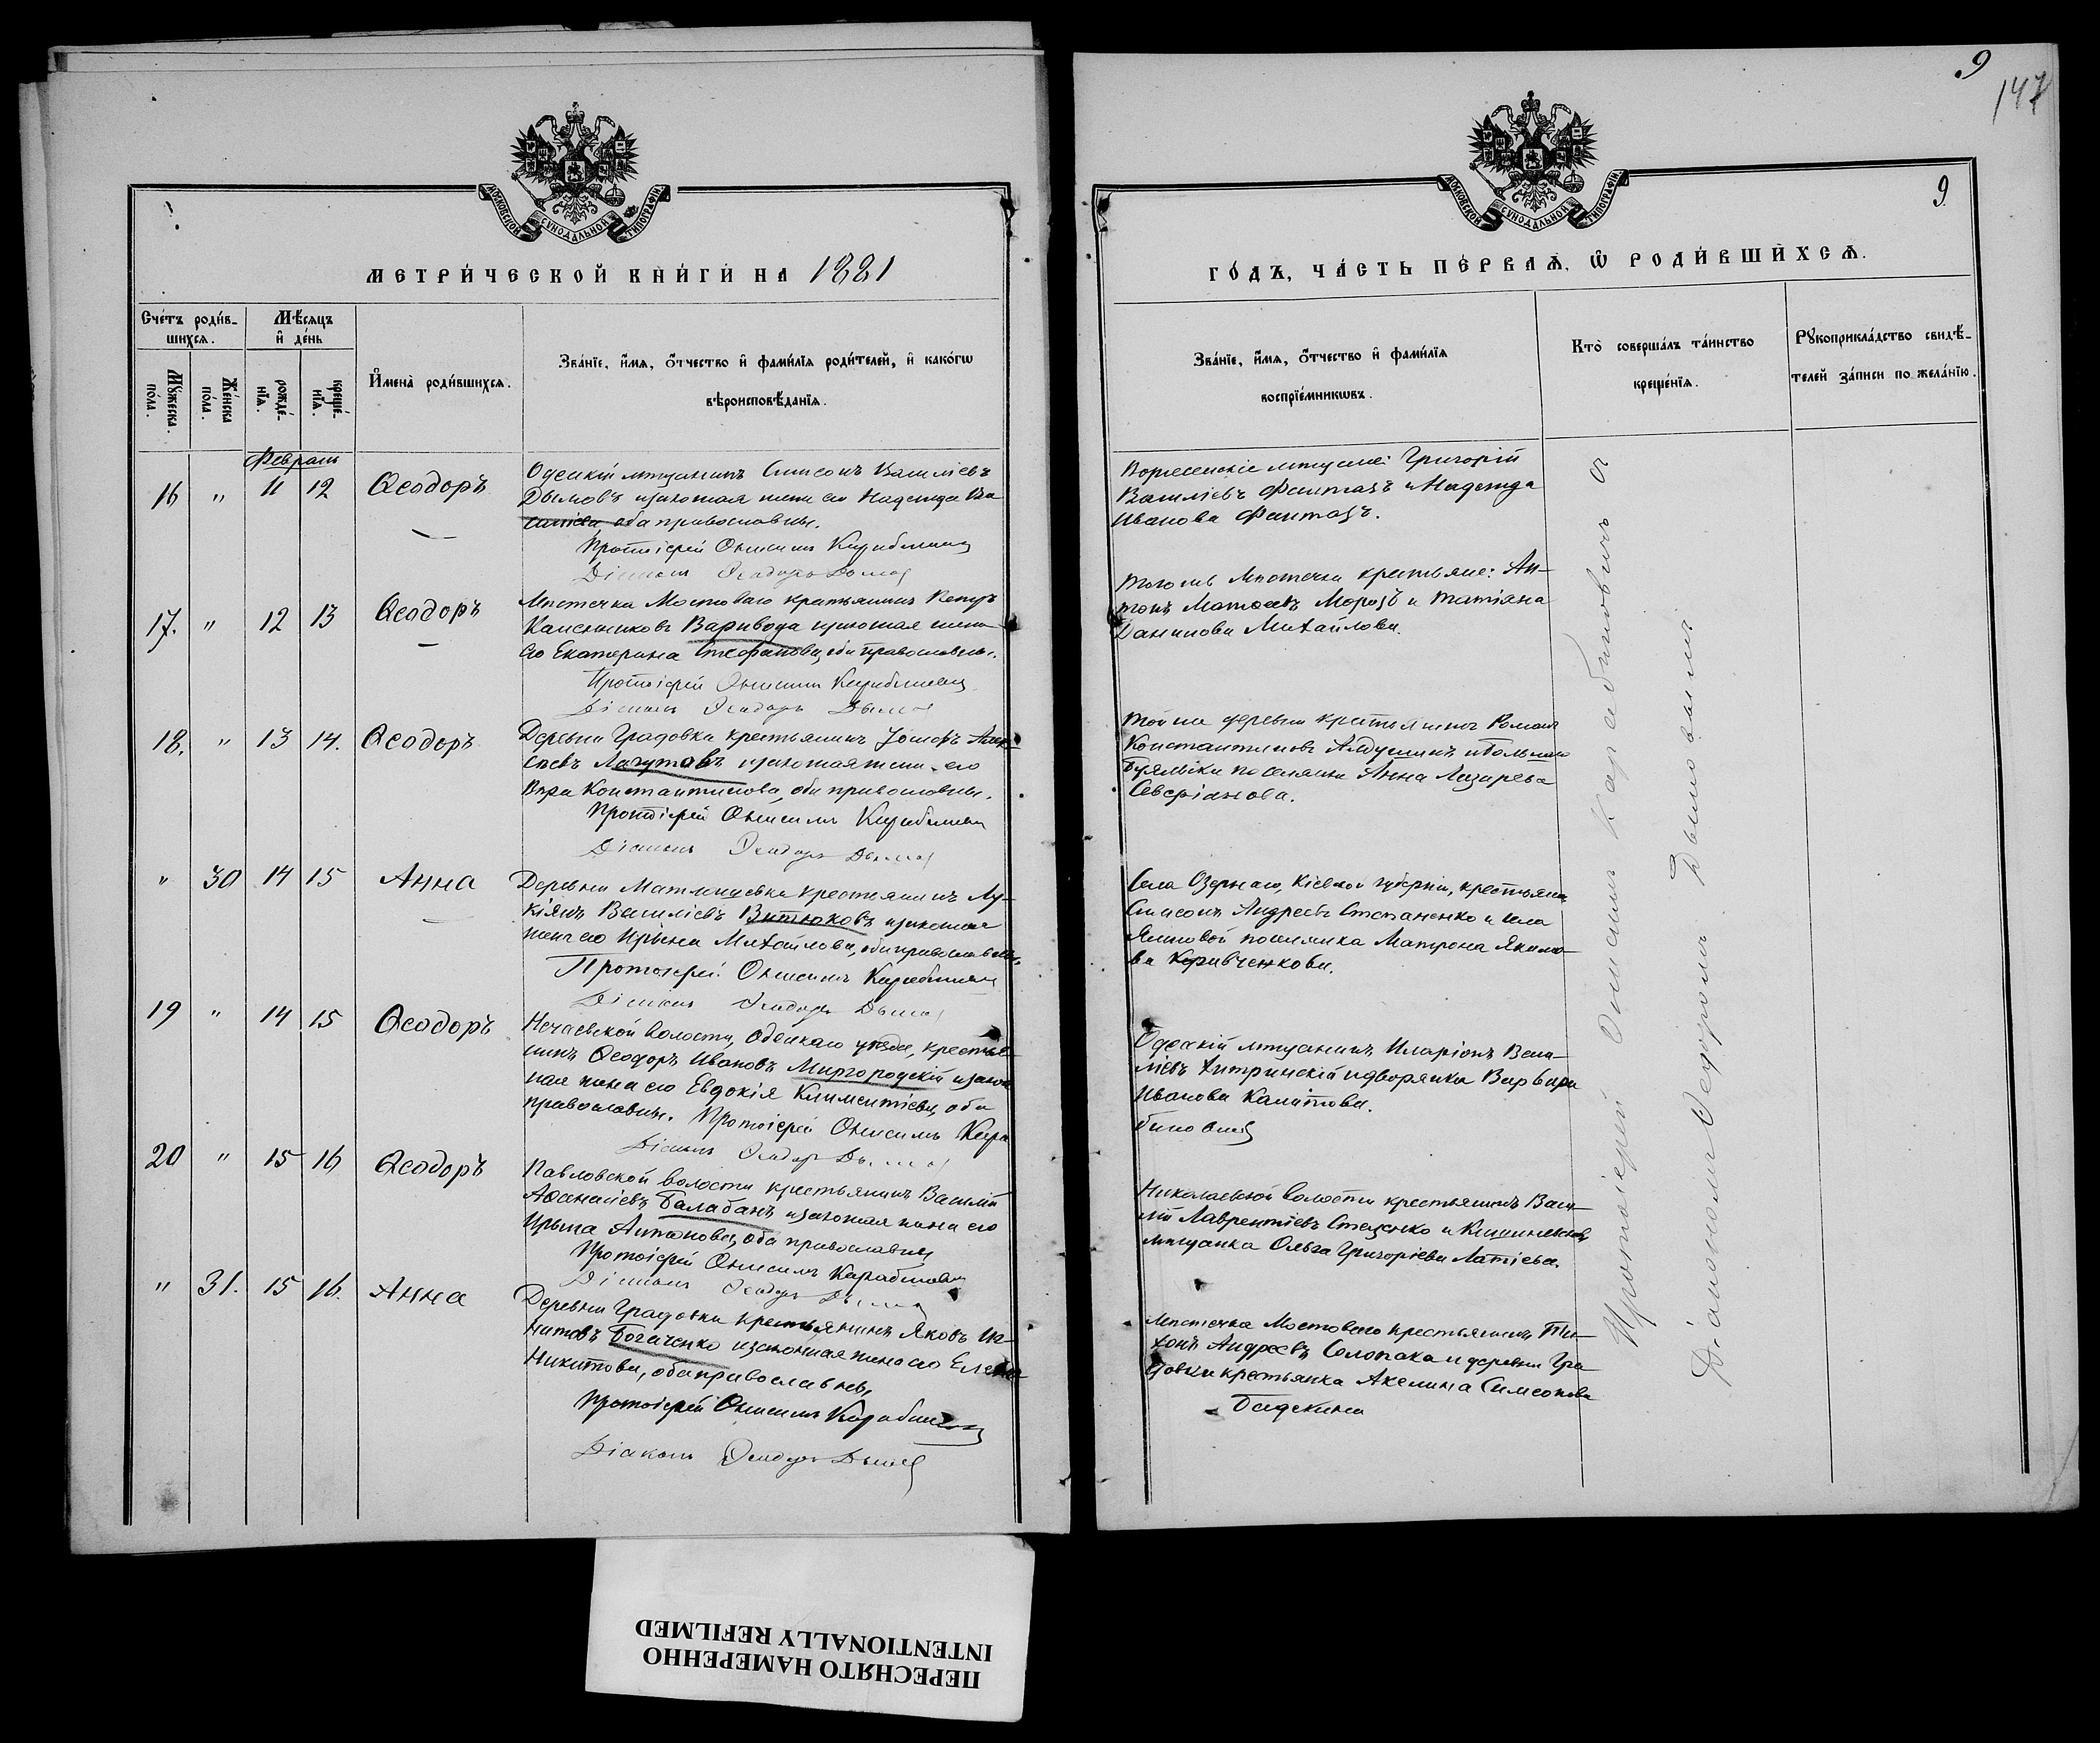 9
147
МОСКОВСКОЙ СУНОДАЛЬНОЙ ТИПОГРАФІИ
МЕТРИ́ЧЕСКОЙ КНИ́ГИ НА 1881
Сче́тъ роди́в-
шихсѧ.
Мѣ́сѧцъ
и҆ де́нь
Мꙋ́жеска
по́ла.
Же́нска
по́ла.
рожде́-
нїѧ.
креще́-
нїѧ.
И҆мена̀ роди́вшихсѧ.
Зва́нїе, и҆́мѧ, ѻ҆́тчество и҆ фами́лїѧ роди́телей, и҆ како́гѡ
вѣроисповѣ́данїѧ.
Февраль
16 " 11 12 Ѳеодоръ
Одескій мѣщанинъ Симеонъ Василіевъ
Дымовъ и законная жена его Надежда Ва-
силіева, оба православны.
Протоіерей Онисимъ Карабиновичъ
Діаконъ Ѳеодоръ Дымов
17. " 12 13 Ѳеодоръ
Мѣстечка Мостоваго крестьянинъ Петръ
Варивода и законная жена
его Екатерина Стефанова, оба православны.
Протоіерей Онисимъ Карабиновичъ
Діаконъ Ѳеодоръ Дымов
18. " 13 14. Ѳеодоръ
Деревни Градовки крестьянинъ Іосифъ Алек-
сѣевъ и законная жена его
Вѣра Константинова, оба православны.
Протоіерей Онисимъ Карабинович
Діаконъ Ѳеодоръ Дымов
" 30 14 15 Анна
Деревни крестьянинъ Лу-
кіянъ Василіевъ Витюковъ и законная
жена его Ирина Михайлова, оба православны.
Протоіерей Онисимъ Карабинович
Діаконъ Ѳеодоръ Дымов
19 " 14 15 Ѳеодоръ
Нечаевской волости, Одескаго уѣзда, крестья-
нинъ Ѳеодоръ Ивановъ Миргородскій и закон-
ная жена его Евдокія Климентіева, оба
православны. Протоіерей Онисимъ Кара-
Діаконъ Ѳеодоръ Дымов
20 " 15 16 Ѳеодоръ
Павловской волости крестьянинъ Василій
Аѳанасіевъ Балабанъ и законная жена его
Ирина Антонова, оба православны
Протоіерей Онисимъ Карабинович
Діаконъ Ѳеодоръ Дымов
" 31. 15 16. Анна
Деревни Градовки крестьянинъ Яковъ Иг-
натовъ Богаченко и законная жена его Елена
Никитова, оба православны,
Протоіерей Онисимъ Карабинович
Діаконъ Ѳеодоръ Дымов
МОСКОВСКОЙ СУНОДАЛЬНОЙ ТИПОГРАФІИ
9.
ГО́ДЪ, ЧА́СТЬ ПЕ́РВАѦ, Ѡ҆ РОДИ́ВШИХСѦ.
Зва́нїе, и҆́мѧ, ѻ҆́тчество и҆ фами́лїѧ
воспрїе́мникѡвъ.
Кто̀ соверша́лъ та́инство
креще́нїѧ.
Рꙋкоприкла́дство свидѣ́-
телей за́писи по жела́нїю.
Вознесенскіе мѣщане: Григорій
Василіевъ Фантазъ и Надежда
Иванова Фантазъ.
Того же Мѣстечка крестьяне: Ан-
тонъ Матѳеевъ Морозъ и Татіяна
Данилова Михайлова.
Той же деревни крестьянинъ Романъ
Константиновъ и Большаго
Буялыка поселянка Анна Лазарева
Севсріанова.
Села Озернаго, Кіевской губерніи, крестьянинъ
Симеонъ Андреевъ Степаненко и села
Ясиновой поселянка Матрона Яковле-
ва Кравченкова.
Одескій мѣщанинъ Иларіонъ Васи-
ліевъ Хитринскій и дворянка Варвара
Иванова Калитова.
биновичъ
Николаевской волости крестьянинъ Васи-
лій Лаврентіевъ Стеценко и Кишиневская
мѣщанка Ольга Григоріева Латіева.
Мѣстечка Мостоваго крестьянинъ Ти-
хонъ Андреевъ Солопака и деревни Гра-
довки крестьянка Акелина Симеонова
Бадекина
Протоіерей Онисимъ Карабиновичъ съ
Діакономъ Ѳеодоромъ Дымовымъ
ПЕРЕСНЯТО НАМЕРЕННО
INTENTIONALLY REFILMED